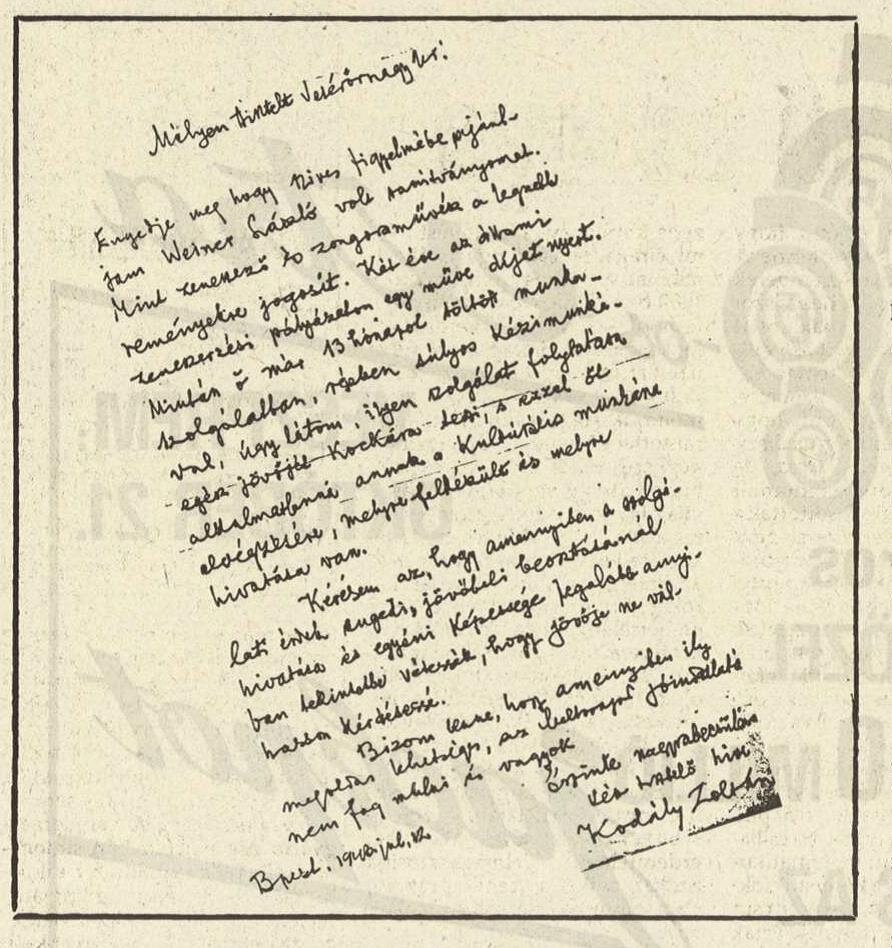 Mélyen tisztelt Vezérőrnagy Úr!
Engedje meg hogy szives figyelmébe ajánl-
jam Weiner László volt tanítványomat.
Mint zeneszerző és zongoraművész a legszebb
reményekre jogosít. Két éve az állami
zeneszerzési pályázaton egy műve díjat nyert.
Miután ő már 13 hónapot töltött munka-
szolgálatban, részben súlyos kézimunká-
val, úgy látom, ilyen szolgálat folytatása
egész jövőjét kockára teszi, s ezzel őt
alkalmatlanná annak a kultúrális munkának
elvégzésére, melyre felkészült és melyre
hivatása van.
Kérésem az, hogy amennyiben a szolgá-
lati érdek engedi, jövőbeli beosztásánál
hivatása és egyéni képessége legalább annyi-
ban tekintetbe vétessék, hogy jövője ne vál-
hasson kérdésessé.
Bízom benne, hogy amennyiben ily
megoldás lehetséges, az jóindulatá
nem fog múlni és vagyok
őszinte nagyrabecsülése
kész híve
Kodály Zoltán
Bpest, júl.